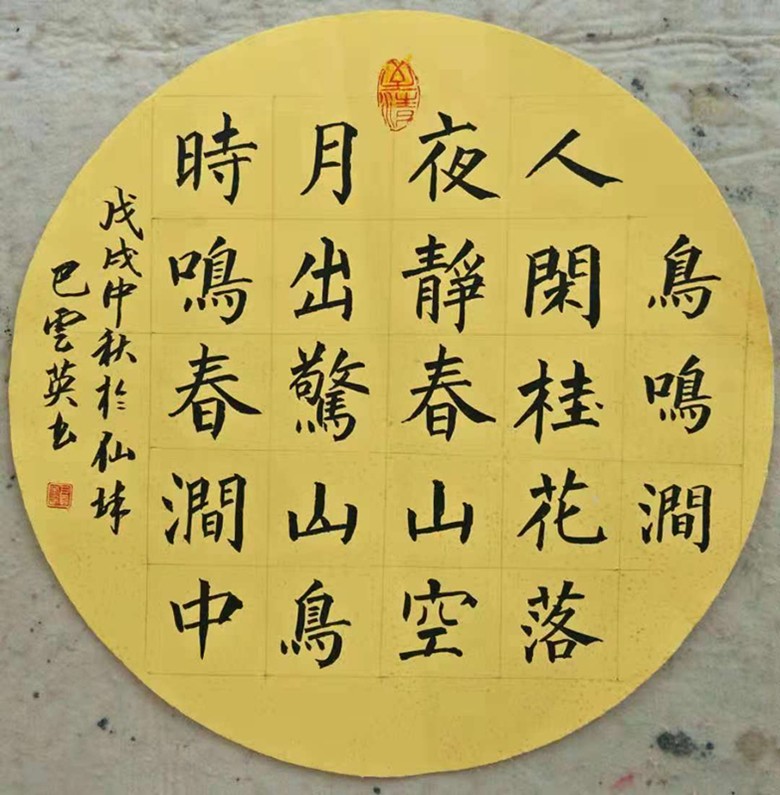 鳥鳴澗
人閑桂花落
夜靜春山空
月出驚山鳥
時鳴春澗中
戊戌中秋於仙
巴雲英书